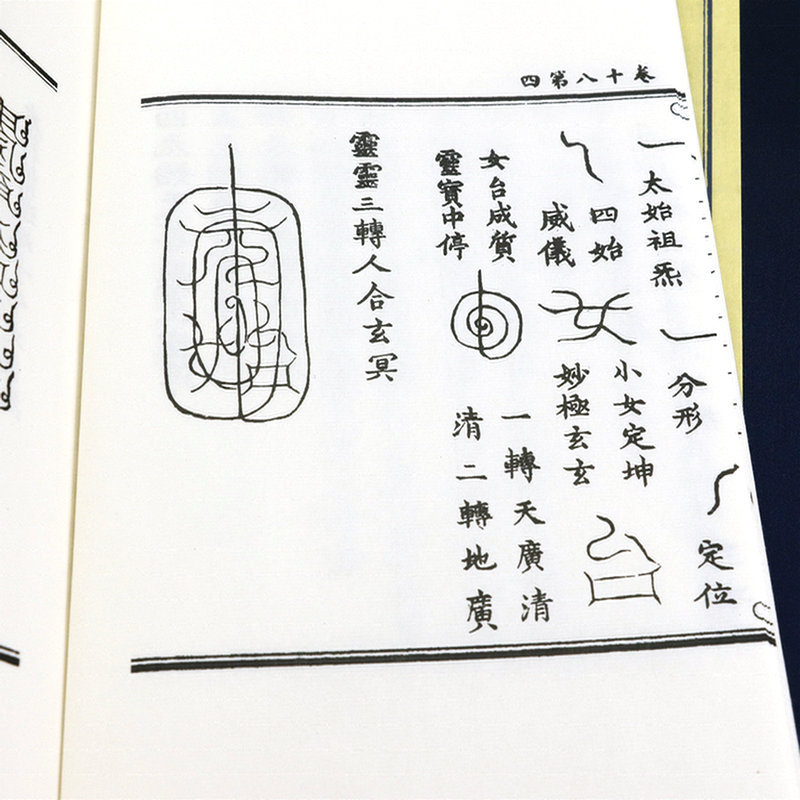 卷十八第四
太始祖炁
分形
定位
四始
威儀
小女定坤
妙極玄玄
女台成質
靈寶中停
一轉天廣清
清二轉地廣
靈靈三轉人合玄冥